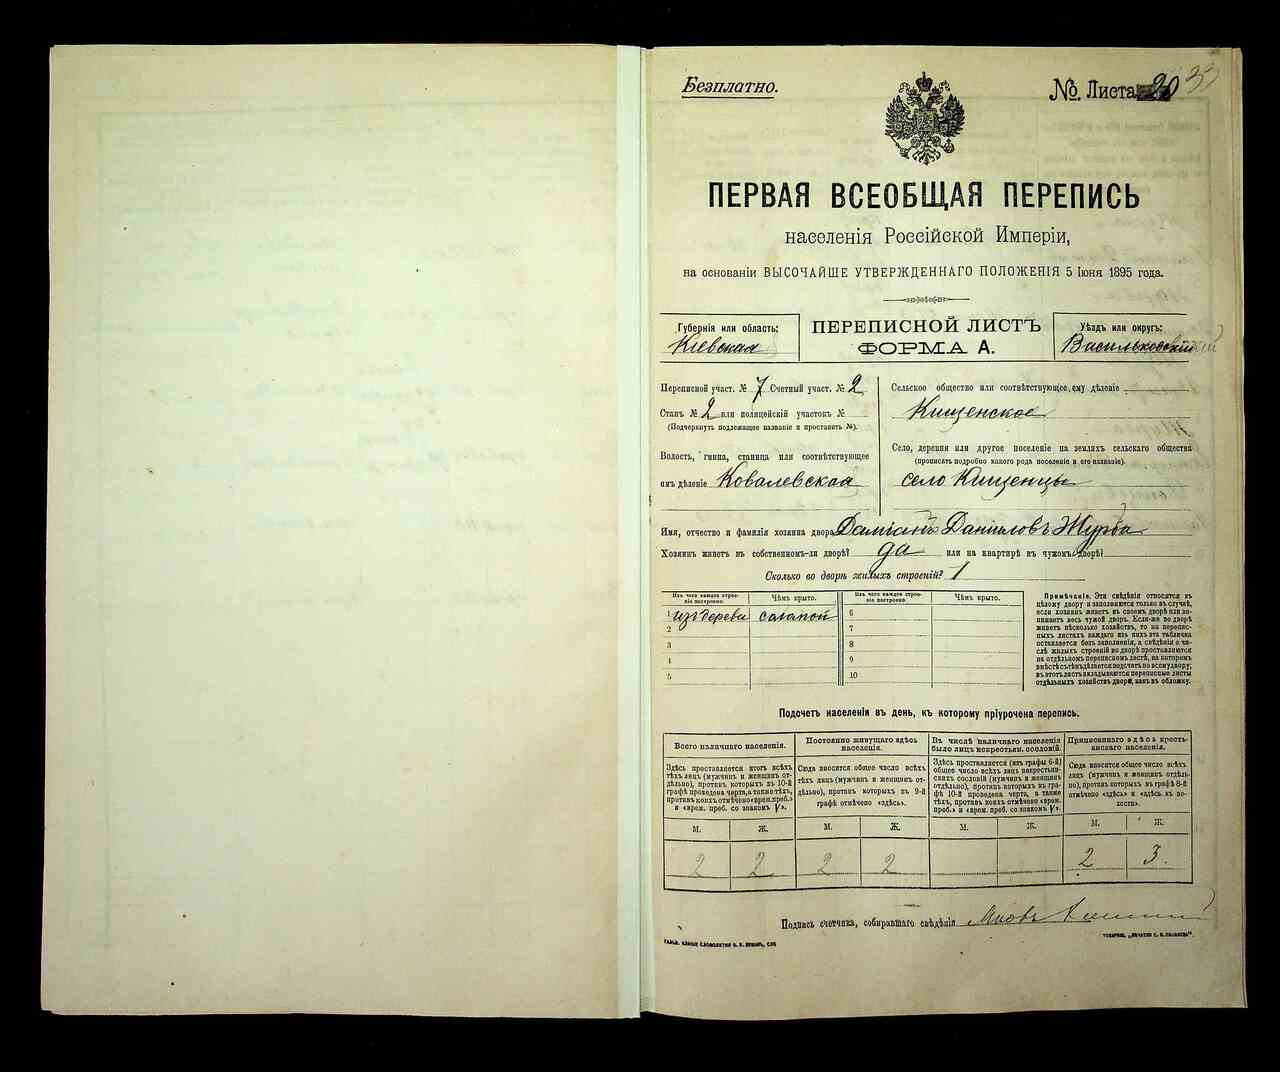 Безплатно.
№ Листа 20
ПЕРВАЯ ВСЕОБЩАЯ ПЕРЕПИСЬ
населенія Россійской Имперіи,
на основаніи ВЫСОЧАЙШЕ УТВЕРЖДЕННАГО ПОЛОЖЕНІЯ 5 Іюня 1895 года.
Губернія или область:
Кіевская
ПЕРЕПИСНОЙ ЛИСТЪ
ФОРМА А.
Уѣздъ или округъ:
Васильковскій
Переписной участ. № 7 Счетный участ. № 2
Станъ № 2 или полицейскій участокъ №
(Подчеркнуть подлежащее названіе и проставить №).
Волость, гмина, станица или соотвѣтствующее
имъ дѣленіе Ковалевская
Сельское общество или соотвѣтствующее ему дѣленіе
Кищенское
Село, деревня или другое поселеніе на земляхъ сельскаго общества
(прописать подробно какого рода поселеніе и его названіе).
село Кищенцы
Имя, отчество и фамилія хозяина двора Даміанъ Даниловъ Журба
Хозяинъ живетъ въ собственномъ-ли дворѣ? да или на квартирѣ въ чужомъ дворѣ?
Сколько во дворѣ жилыхъ строеній? 1
Изъ чего каждое строе-
ніе построено.
Чѣмъ крыто.
Изъ чего каждое строе-
ніе построено.
Чѣмъ крыто.
1 изъ дерева соломой 6
2 7
3 8
4 9
5 10
Примѣчаніе. Эти свѣдѣнія относятся къ
цѣлому двору и заполняются только въ случаѣ,
если хозяинъ живетъ въ своемъ дворѣ или за-
нимаетъ весь чужой дворъ. Если-же во дворѣ
живетъ нѣсколько хозяйствъ, то на переписн-
ныхъ листахъ каждаго изъ нихъ эта табличка
оставляется безъ заполненія, а свѣдѣнія о чи-
слѣ жилыхъ строеній во дворѣ проставляются
на отдѣльномъ переписномъ листѣ, на которомъ
вмѣстѣ съ тѣмъ дѣлается подсчетъ по всему двору;
въ этотъ листъ вкладываются переписные листы
отдѣльныхъ хозяйствъ двора, какъ въ обложку.
Подсчетъ населенія въ день, къ которому пріурочена перепись.
Всего наличнаго населенія.
Здѣсь проставляется итогъ всѣхъ
тѣхъ лицъ (мужчинъ и женщинъ от-
дѣльно), противъ которыхъ въ 10-й
графѣ проведена черта, а также тѣхъ,
противъ коихъ отмѣчено «врем. преб.»
и «врем. преб. со знакомъ V».
Постоянно живущаго здѣсь
населенія.
Сюда вносится общее число всѣхъ
тѣхъ лицъ (мужчинъ и женщинъ от-
дѣльно), противъ которыхъ въ 9-й
графѣ отмѣчено «здѣсь».
Въ числѣ наличнаго населенія
было лицъ некрестьян. сословій.
Здѣсь проставляется (изъ графы 6-й)
общее число всѣхъ лицъ некрестьян-
скихъ сословій (мужчинъ и женщинъ
отдѣльно), противъ которыхъ въ гра-
фѣ 10-й проведена черта, а также
тѣхъ, противъ коихъ отмѣчено «врем.
преб.» и «врем. преб. со знакомъ V».
Приписаннаго здѣсь кресть-
янскаго населенія.
Сюда вносится общее число всѣхъ
лицъ (мужчинъ и женщинъ отдѣль-
но), противъ которыхъ въ графѣ 8-й
отмѣчено «здѣсь» и «здѣсь къ во-
лости».
М. Ж. М. Ж. М. Ж. М. Ж.
2 2 2 2 2 3.
Подпись счетчика, собиравшаго свѣдѣнія